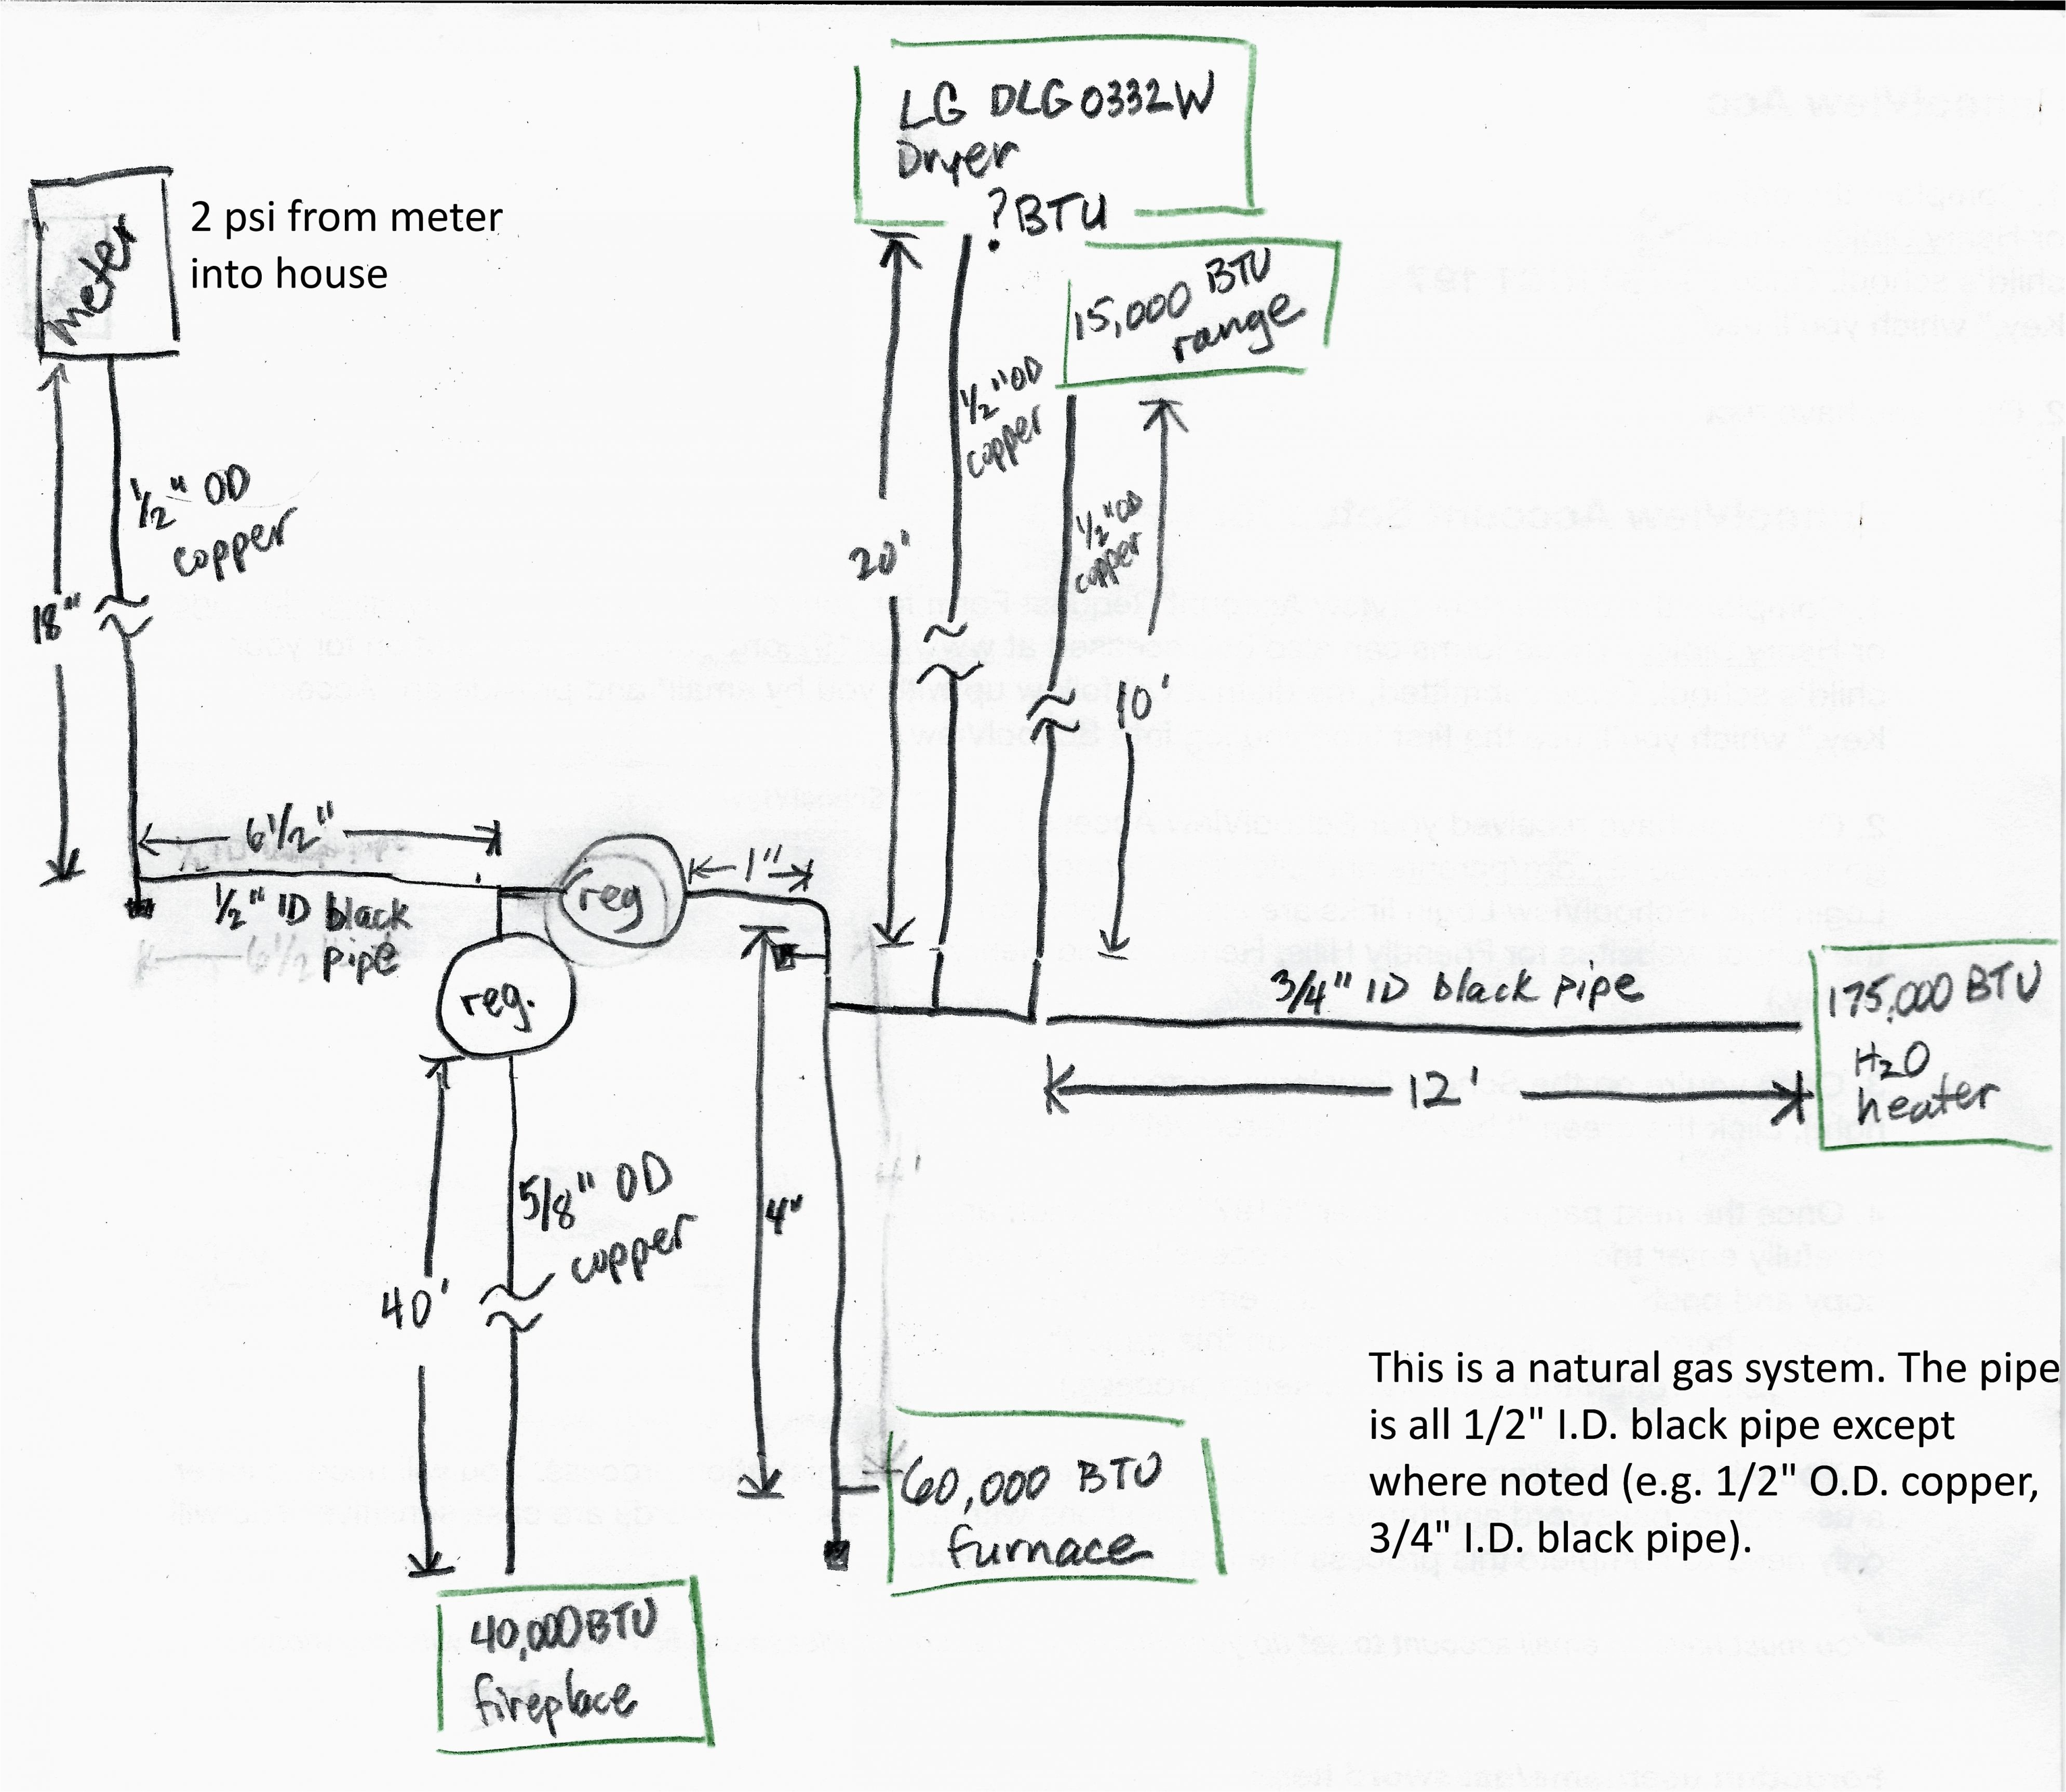 LG DLG0332W
Dryer
? BTU
meter
2 psi from meter
into house
15,000 BTU
range
1/2" OD
copper
1/2" OD
copper
18"
20'
1/2" OD
copper
10'
6 1/2"
1/2" ID black
pipe
reg
1"
reg.
3/4" ID black pipe
12'
175,000 BTU
H2O
heater
5/8" OD
copper
40'
4"
60,000 BTU
furnace
40,000 BTU
fireplace
This is a natural gas system. The pipe
is all 1/2" I.D. black pipe except
where noted (e.g. 1/2" O.D. copper,
3/4" I.D. black pipe).